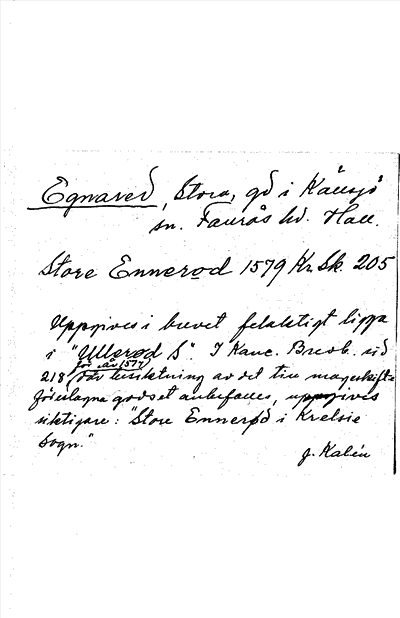 Egnared, Stora, gd i Källsjö
sn. Faurås hd. Hall.
Store Ennerod 1579 Kr. Sk. 205
Uppgives i brevet felaktigt ligga
i "Ullerød S". I Kanc. Brevb. sid
för år 1577
218, där besiktning av det till mageskifte
föreslagna godset anbefalles, uppgives
riktigare: "Store Ennerød i Krelsie
Sogn."
J. Kalén